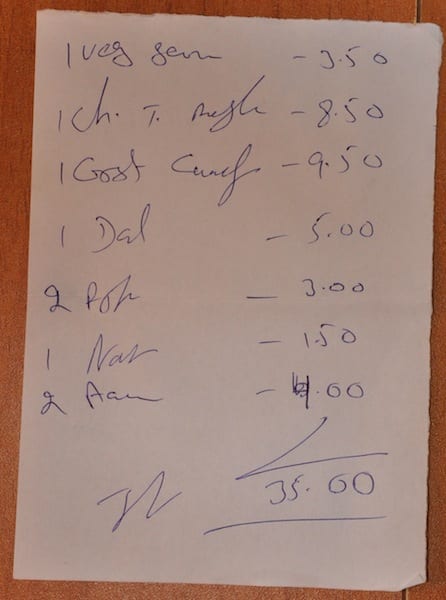 1 Veg Sam - 3.50
1 Ch. T. - 8.50
1 Goat Curry - 9.50
1 Dal - 5.00
2 - 3.00
1 Nan - 1.50
2 - 4.00
35.00